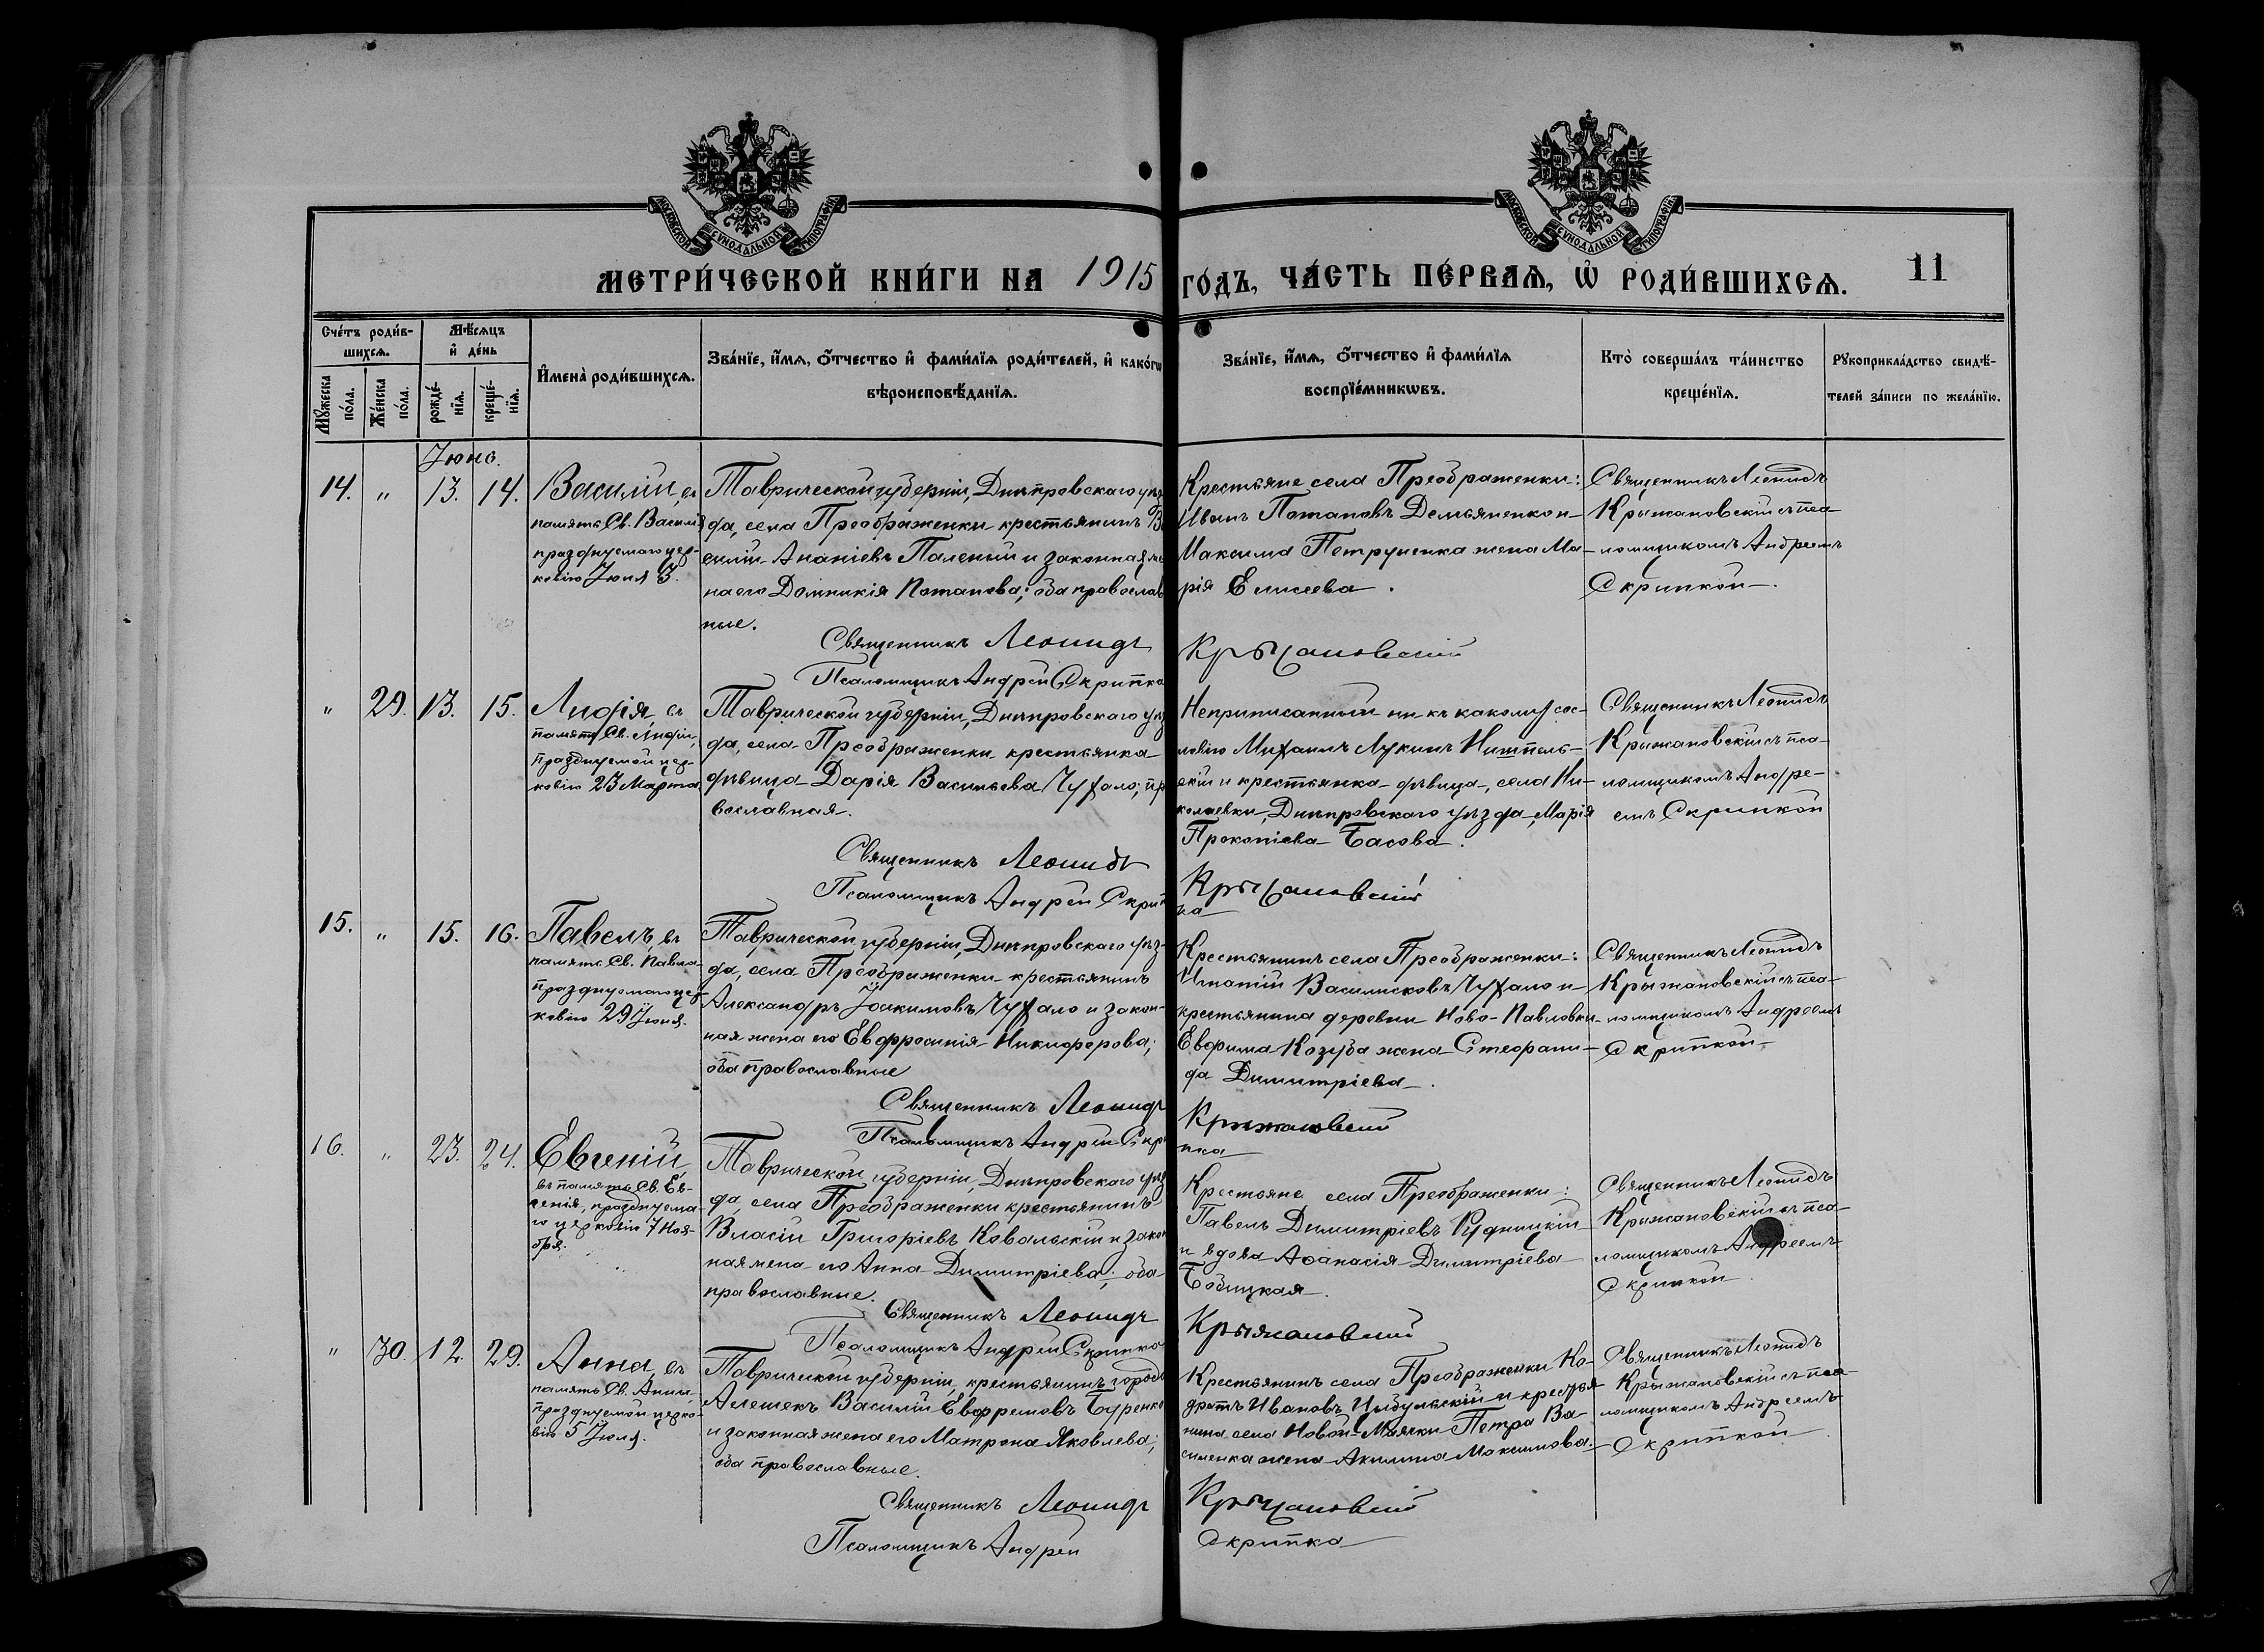 МОСКОВСКОЙ СѴНОДАЛЬНОЙ ТИПОГРАФІИ
МОСКОВСКОЙ СѴНОДАЛЬНОЙ ТИПОГРАФІИ
МЕТРИ́ЧЕСКОЙ КНИ́ГИ НА 1915 ГО́ДЪ, ЧА́СТЬ ПЕ́РВАѦ, Ѡ҆ РОДИ́ВШИХСѦ. 11
Сче́тъ роди́в-
шихсѧ.
Мѣ́сѧцъ
и҆ де́нь
Мꙋ́жеска
по́ла.
Же́нска
по́ла.
рожде́-
нїѧ.
креще́-
нїѧ.
И҆мена̀ роди́вшихсѧ.
Зва́нїе, и҆́мѧ, ѻ҆́тчество и҆ фами́лїѧ роди́телей, и҆ како́гѡ
вѣроисповѣ́данїѧ.
Зва́нїе, и҆́мѧ, ѻ҆́тчество и҆ фами́лїѧ
воспрїе́мникѡвъ.
Кто̀ соверша́лъ та́инство
креще́нїѧ.
Рꙋкоприкла́дство свидѣ́-
телей за́писи по жела́нїю.
Іюнь.
14. " 13. 14.
Василій, въ
память Св. Василія
празднуемаго цер-
ковію Іюня 3.
Таврической губерніи, Днѣпровскаго уѣз
да, села Преображенки крестьянинъ Ва
силій Ананіевъ Паленый и законная же
на его Домникія Потапова; оба православ
ные.
Священникъ Леонидъ
Псаломщикъ Андрей Скрипка
Крестьяне села Преображенки:
Иванъ Потаповъ Демьяненко и
Максима Петруненка жена Ма-
рія Елисеева.
Крыжановскій
Священникъ Леонидъ
Крыжановскій съ пса-
ломщикомъ Андреемъ
Скрипкой.
" 29. 13. 15.
Лидія, въ
память Св. Лидіи,
празднуемой цер-
ковію 23 Марта
Таврической губерніи, Днѣпровскаго уѣз
да, села Преображенки крестьянка
дѣвица Дарія Васильева Чухало; пр
вославная.
Священникъ Леонидъ
Псаломщикъ Андрей Скрип
Неприписанный ни къ какому сос-
ловію Михаилъ Лукинъ
скій и крестьянка дѣвица, села Ни-
колаевки, Днѣпровскаго уѣзда, Марія
Прокопіева Басова.
Крыжановскій
ка
Священникъ Леонидъ
Крыжановскій съ пса-
ломщикомъ Андре-
емъ Скрипкой
15. " 15. 16.
Павелъ, въ
память Св. Павла
празднуемаго цер-
ковію 29 Іюня.
Таврической губерніи, Днѣпровскаго уѣз-
да, села Преображенки крестьянинъ
Александръ Іоакимовъ Чухало и закон-
ная жена его Евфросинія Никифорова;
оба православные
Священникъ Леонидъ
Псаломщикъ Андрей Скри
Крестьянинъ села Преображенки:
Игнатій Чухало и
крестьянина деревни Ново-Павловки
Евфима Козуба жена Стефани-
да Димитріева.
Крыжановскій
пка
Священникъ Леонидъ
Крыжановскій съ пса-
ломщикомъ Андреемъ
Скрипкой
16. " 23. 24.
Евгеній,
въ память Св. Ев-
генія, празднуема-
го церковію 7 Ноя-
бря.
Таврической губерніи, Днѣпровскаго уѣз
да, села Преображенки крестьянинъ
Власій Григоріевъ Ковальскій и закон
ная жена его Анна Димитріева; оба
православные.
Священникъ Леонидъ
Псаломщикъ Андрей Скрипка
Крестьяне села Преображенки:
Павелъ Димитріевъ Рудницкій
и вдова Аѳанасія Димитріева
Крыжановскій
Священникъ Леонидъ
Крыжановскій съ пса-
ломщикомъ Андреемъ
Скрипкой.
" 30. 12. 29.
Анна, въ
память Св. Анны,
празднуемой церко-
вію 5 Іюля.
Таврической губерніи, крестьянинъ города
Алешекъ Василій Евфремовъ Буренко
и законная жена его Матрона Яковлева;
оба православные.
Священникъ Леонидъ
Псаломщикъ Андрей
Крестьянинъ села Преображенки Ко-
дратъ Ивановъ Цыбульскій и крестья
нина села Новой-Маячки Петра Ва-
силенка жена Акилина Максимова.
Крыжановскій
Скрипка
Священникъ Леонидъ
Крыжановскій съ пса-
ломщикомъ Андреемъ
Скрипкой.